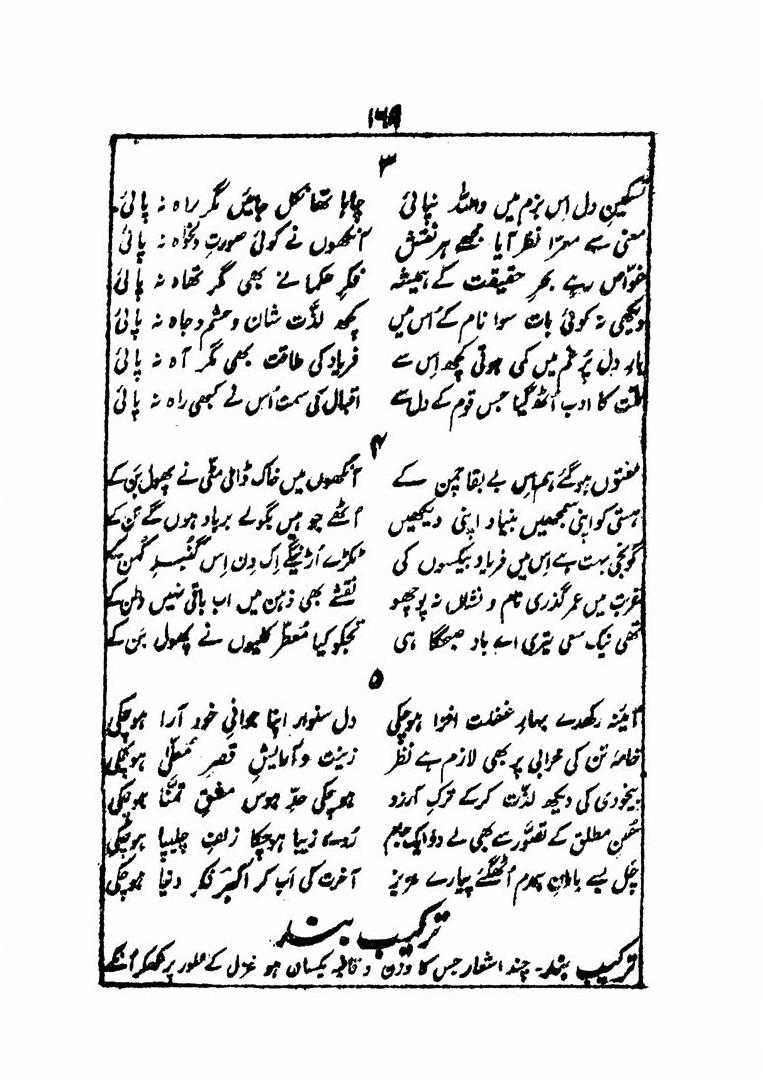 ۱۶۹
۳
تسکینِ دل اس بزم میں واللہ نپائی چاہا تھا نکل جائیں مگر راہ نہ پائی
معنی سے معرّا نظر آیا مجھے ہر نقش آنکھوں نے کوئی صورتِ دلخواہ نہ پائی
غوّاص رہے بحرِ حقیقت کے ہمیشہ فکرِ حکما نے بھی مگر تھاہ نہ پائی
دیکھی نہ کوئی بات سوا نام کے اُس میں کچھ لذّت شان و حشم و جاہ نہ پائی
بارِ دلِ پُر غم میں کمی ہوتی کچھ اِس سے فریاد کی طاقت بھی مگر آہ نہ پائی
ملّت کا ادب اُٹھ گیا جس قوم کے دل سے اقبال کی سمت اُس نے کبھی راہ نہ پائی
۴
مفتوں ہو گئے ہم اِس بے بقا چمن کے آنکھوں میں خاک ڈالی مٹّی نے پھول بَن کے
ہستی کو اپنی سمجھیں بنیاد اپنی دیکھیں اُٹھے جو ہیں بگولے برباد ہوں گے تَن کے
گونجی بہت ہے اِس میں فریاد بیکسوں کی ٹکڑے اُڑینگے اِک دِن اِس گنبدِ کُہن کے
غربت میں عمر گذری نام و نشاں نہ پوچھو نقشے بھی ذہن میں اب باقی نہیں وطن کے
تھی نیک سعی تیری اے باد صبحگا ہی تجکو کیا مُعطّر کلیوں نے پھول بَن کے
۵
آئینہ رکھدے بہارِ غفلت افزا ہو چکی دل سنوار اپنا جوانیِ خود آرا ہو چکی
خانۂ تن کی خرابی پر بھی لازم ہے نظر زینت و آرایشِ قصرِ معلّیٰ ہو چکی
بیخودی کی دیکھ لذّت کر کے ترکِ آرزو ہو چکی حدِ ہوس مشقِ تمنّا ہو چکی
حُسنِ مطلق کے تصوّر سے بھی لے دو ایک جام رُوے زیبا ہو چکا زلفِ چلیپا ہو چکی
چل بسے یارانِ ہمدم اُٹھ گئے پیارے عزیز آخرت کی اَب کر اکبرؔ فکرِ دنیا ہو چکی
ترکیب بند
ترکیب بند۔ چند اشعار جس کا وزن و قافیہ یکساں ہو غزل کے طور پر لکھکر اُنکے